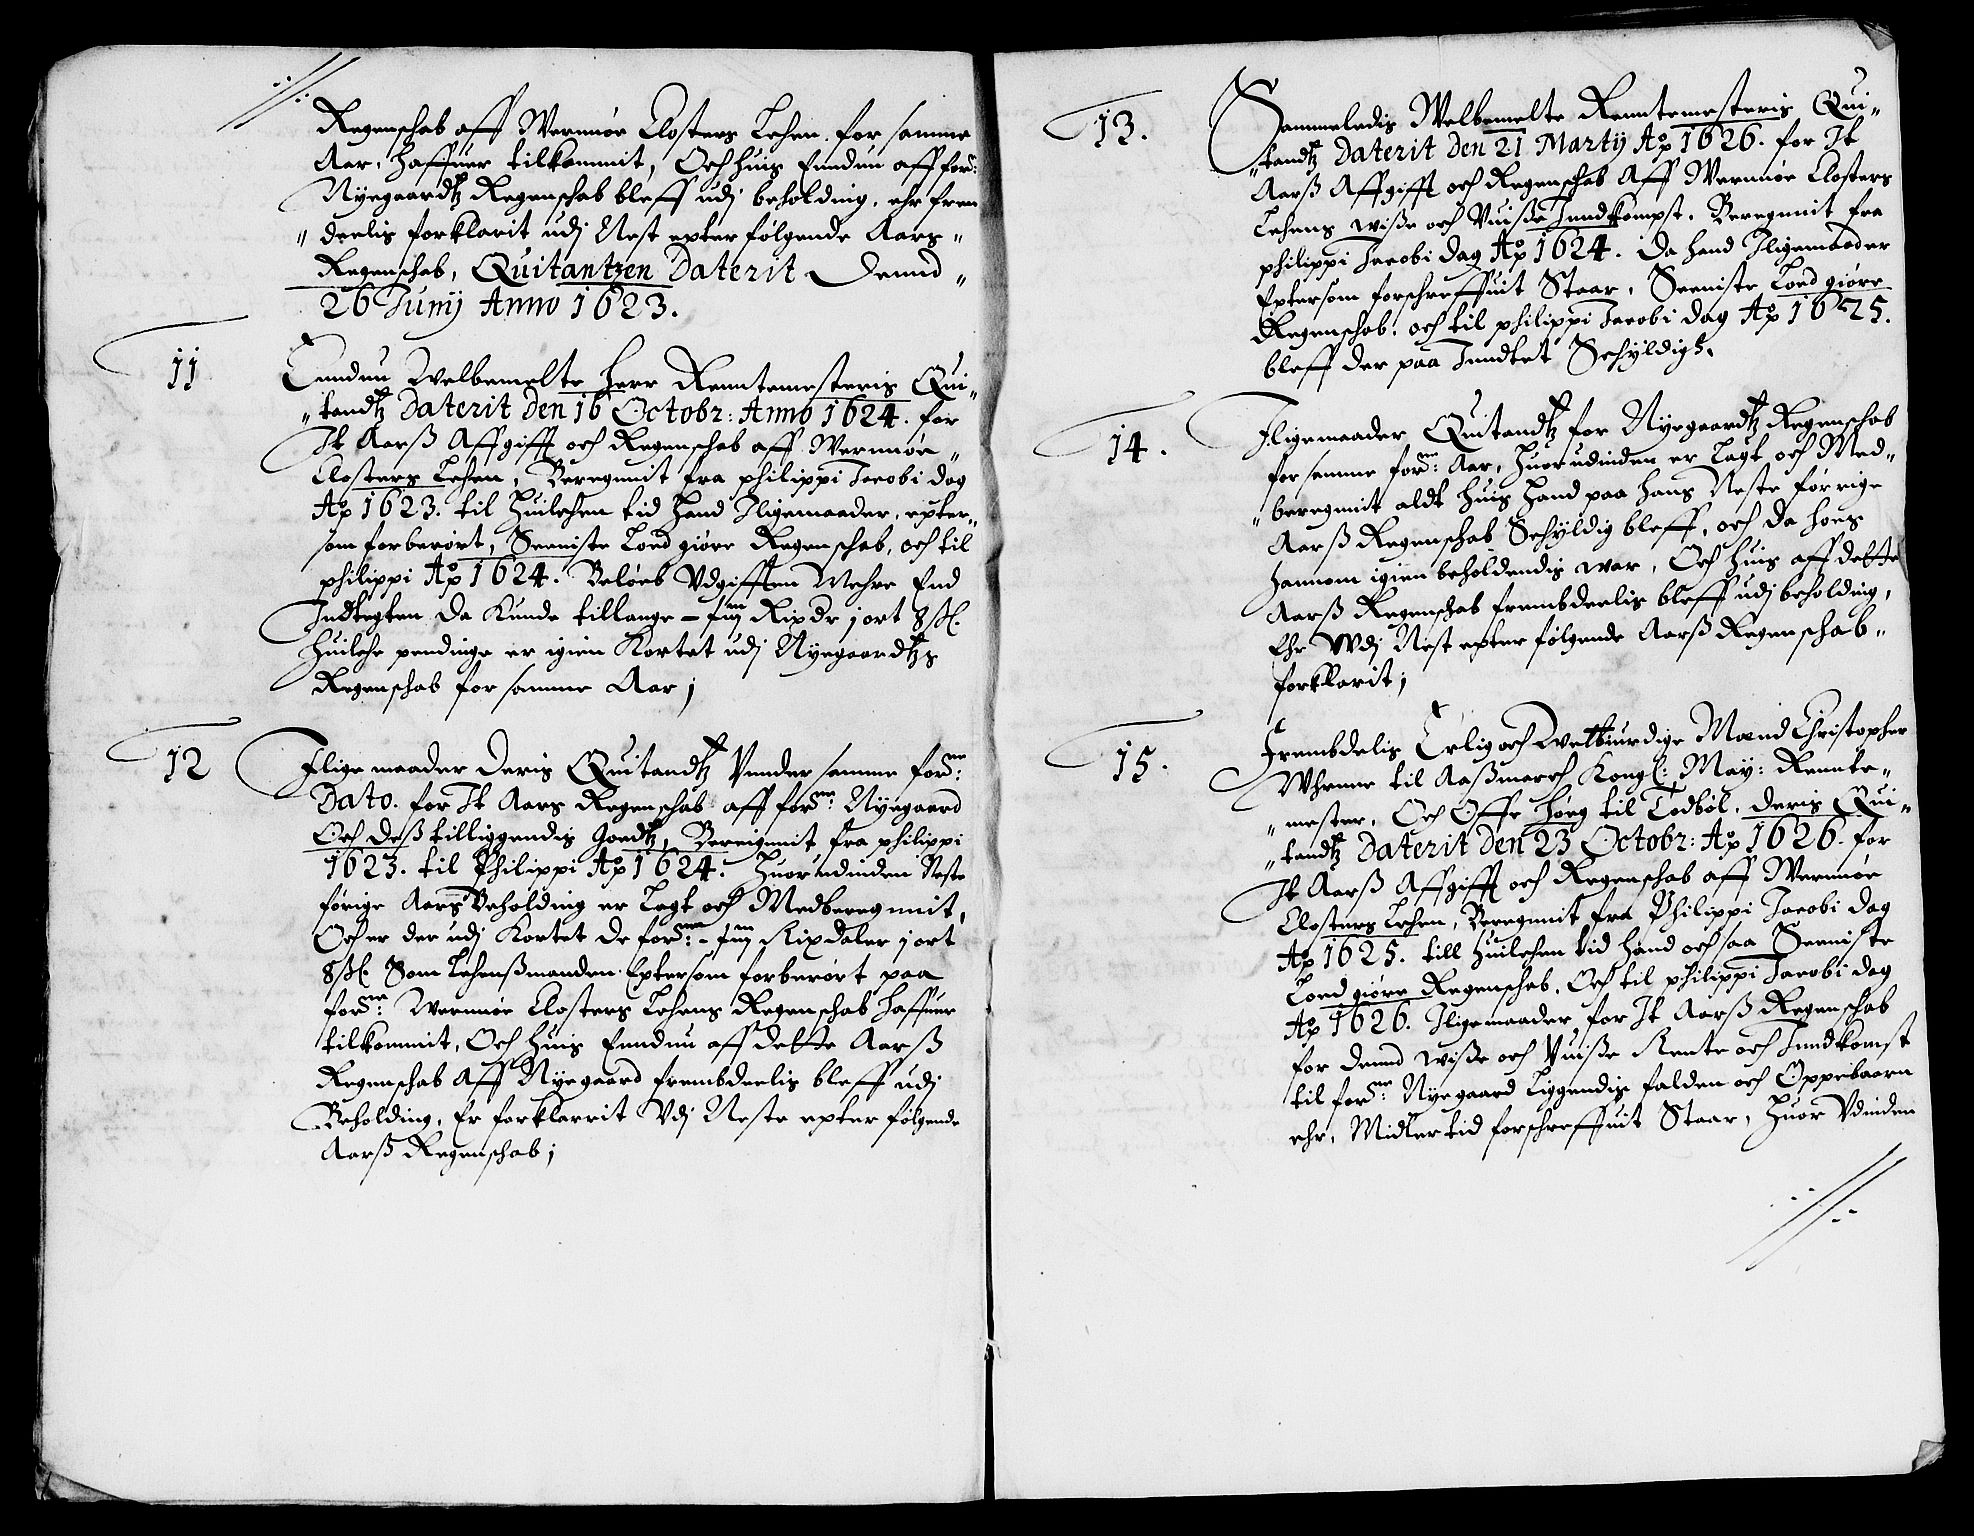 Regenschab aff Wernnøe Closters Lehen for samme
Aar, Haffuer tilkommit, Och huis Ennduu aff for:
Nÿegaardtz Regenschab bleff udj beholding, ehr frem
deelis forklarit udj Nest epter følgende Aars
Regenschab, Quitantzen Daterit Dennd
26 Junij Anno 1623.
11
Ennduu Welbemelte Herr Renntemesteris Qui-
tandtz Daterit den 16 Octobr: Anno 1624. for
It Aarß Affgifft och Regenschab aff Wernnøe
Closters Lehen, Beregnnit fra philippi Jacobi dag
Ao 1623. til Huilchen tid Hand Iligemaader, epter
som forberørt, Seeniste Loed giøre Regenschab, och til
philippi Ao 1624. Beløeb Vdgifften Mehre End
Indtegten da Kunde tillange - Rixdr j ort 8 sk.
Huilche pendinge er igien Kortet udj Nÿegaardtzs
Regenschab for samme Aar;
12
Ilige maader deris Quitandtz Vnnder samme forne:
Dato. for It Aars Regenschab aff forne: Nÿegaard
Och deß tilliggendis Goedtz, Bereignnit fra philippi
1623. til Philippi Ao 1624. Huorudinden Neste
førige Aars Beholding er Lagt och Medberegnnit,
Och er der udj Kortet de forne: - Rixdaler j ort
8 sk. Som Lehenßmanden Eptersom forberørt paa
forne: Wernnøe Closters Lehens Regenschab Haffuer
tilkommit, Och huis Ennduu aff dette Aarß
Regenschab Aff Nÿegaard frembdeelis bleff udj
Beholding, Er forklarrit Vdj Neste epter følgende
Aarß Regenschab;
13.
Sammeledis Welbemelte Renntemesteris Qui-
tandtz Daterit den 21 Martÿ Ao 1626. for It
Aarß Affgifft och Regenschab Aff Wernnøe Closters
Lehens wiße och Vuiße Inndkompst. Beregnnit fra
philippi Jacobi dag Ao 1624. da hand Iligemaader
Eptersom forschreffuit Staar, Seeniste Loed giøre
Regenschab. och til philippi Jacobi dag Ao 1625.
bleff der paa Inndtet Schÿldigs.
14.
Iligemaader Quitandtz for Nÿegaardtz Regenschab
for samme forne: Aar, Huorudinden er Lagt och Med-
beregnnit aldt huis Hand paa Hans Neste førrige
Aarß Regenschab Schÿldig bleff, och da hoes
Hannom igien beholdendis war, Och huis aff dette
Aarß Regenschab frembdeelis bleff udj beholding,
Ehr Wdj Nest epter følgende Aarß Regenschab
forklarit;
15.
Frembdelis Erlig och Welbiurdige Mænd Christopher
Whrne til Aaßmarch Kongl: May: Rennte-
mester, Och Offe Høeg til Todbøl. deris Qui-
tandtz Daterit den 23 Octobr: Ao 1626. for
It Aarß Affgifft och Regenschab aff Wernnøe
Closters Lehen, Beregnnit fra Philippi Jacobi dag
Ao 1625. till Huilchen tid Hand och saa Seeniste
Loed giøre Regenschab, Och til philippi Jacobi dag
Ao 1626. Iligemaader for It Aarß Regenschab
for dennd wiße och Vuiße Rente och Inndkomst
til forne: Nÿegaard Liggendis falden och Oppebaaren
ehr, Midlertid forschreffuit Staar, Huor Vdinden